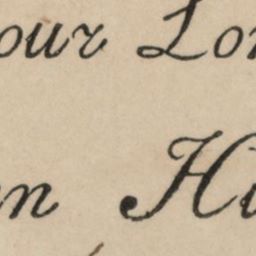 our Lor
n Hi